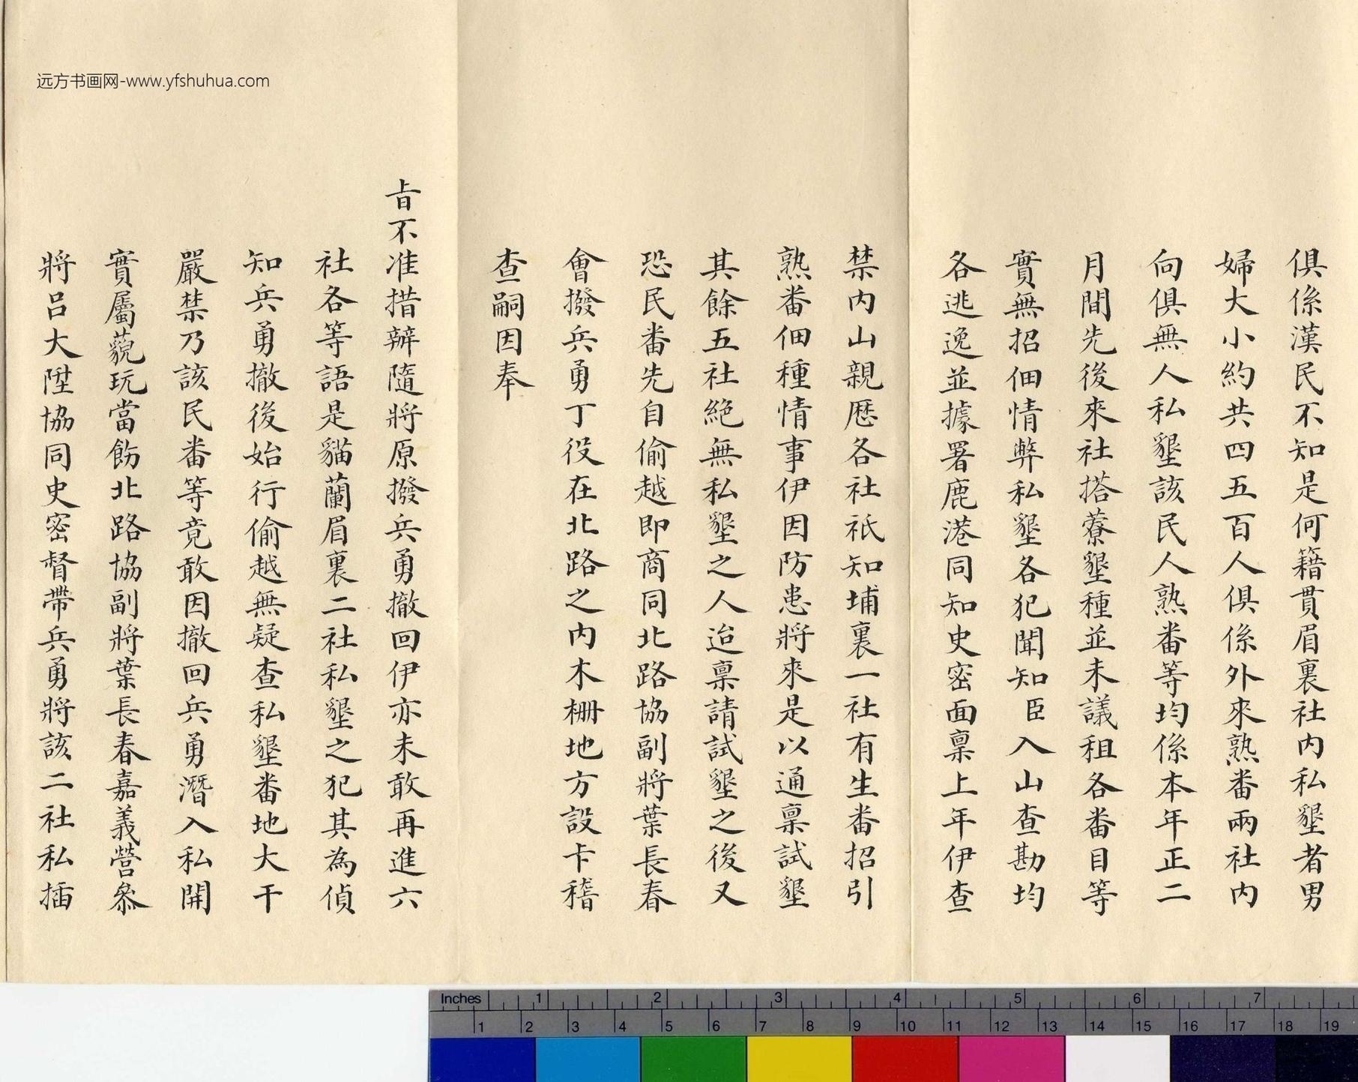 俱係漢民不知是何籍貫眉裏社内私墾者男
婦大小約共四五百人俱係外來熟番兩社内
向俱無人私墾該民人熟番等均係本年正二
月間先後來社搭藔墾種並未議租各番目等
實無招佃情弊私墾各犯聞知臣入山查勘均
各逃逸並據署鹿港同知史密面稟上年伊查
禁内山親歷各社祇知埔裏一社有生番招引
熟番佃種情事伊因防患將來是以通稟試墾
其餘五社絶無私墾之人迨稟請試墾之後又
恐民番先自偷越即商同北路協副將葉長春
會撥兵勇丁役在北路之内木柵地方設卡稽
查嗣因奉
旨不准措辦隨將原撥兵勇撤回伊亦未敢再進六
社各等語是貓蘭眉裏二社私墾之犯其為偵
知兵勇撤後始行偷越無疑查私墾番地大干
嚴禁乃該民番等竟敢因撤回兵勇潛入私開
實屬藐玩當飭北路協副將葉長春嘉義營叅
將呂大陞協同史密督帶兵勇將該二社私插
远方书画网-www.yfshuhua.com
Inches 1 2 3 4 5 6 7
1 2 3 4 5 6 7 8 9 10 11 12 13 14 15 16 17 18 19